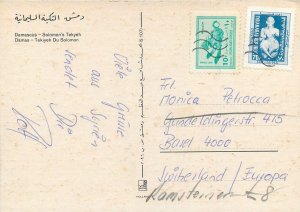 دمشق - التكية السليمانية
Damascus - Solomon's Tekyeh
Damas - Tekiyeh Du Solomon
Viele Grüsse
aus Syrien
sendet Dir
Fri.
Monica Petrocca
Gundeldingerstr. 415
Basel 4000
Switzerland / Europa
Ramsteiner 8